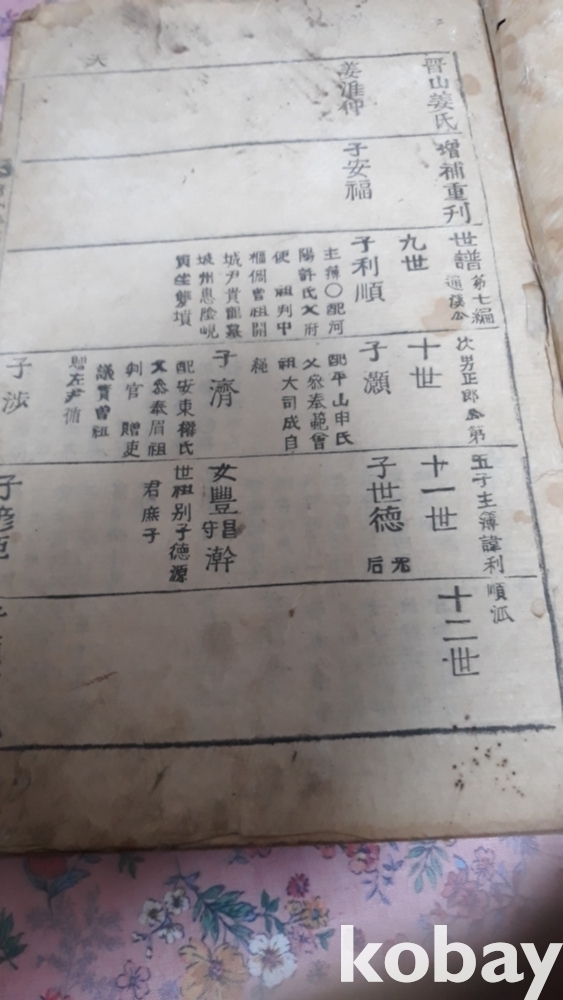 晋山姜氏增補重刊世譜
第七編
通溪公
次男正郎公第五子主簿諱利順派
姜淮仲
子安福
九世
子利順
主簿○配河
陽許氏父府
使 祖判中
樞 曾祖開
城尹貴龍墓
坡州惠陰峴
坐雙墳
十世
子灝
配平山申氏
父參奉範曾
祖大司成自
繩
子濟
配安東權氏
父參奉眉祖
判官 贈吏
議實曾祖
贈左尹
子涉
十一世
子世德
无后
女豐昌守澣
世祖別子德源
君庶子
十二世
八
kobay